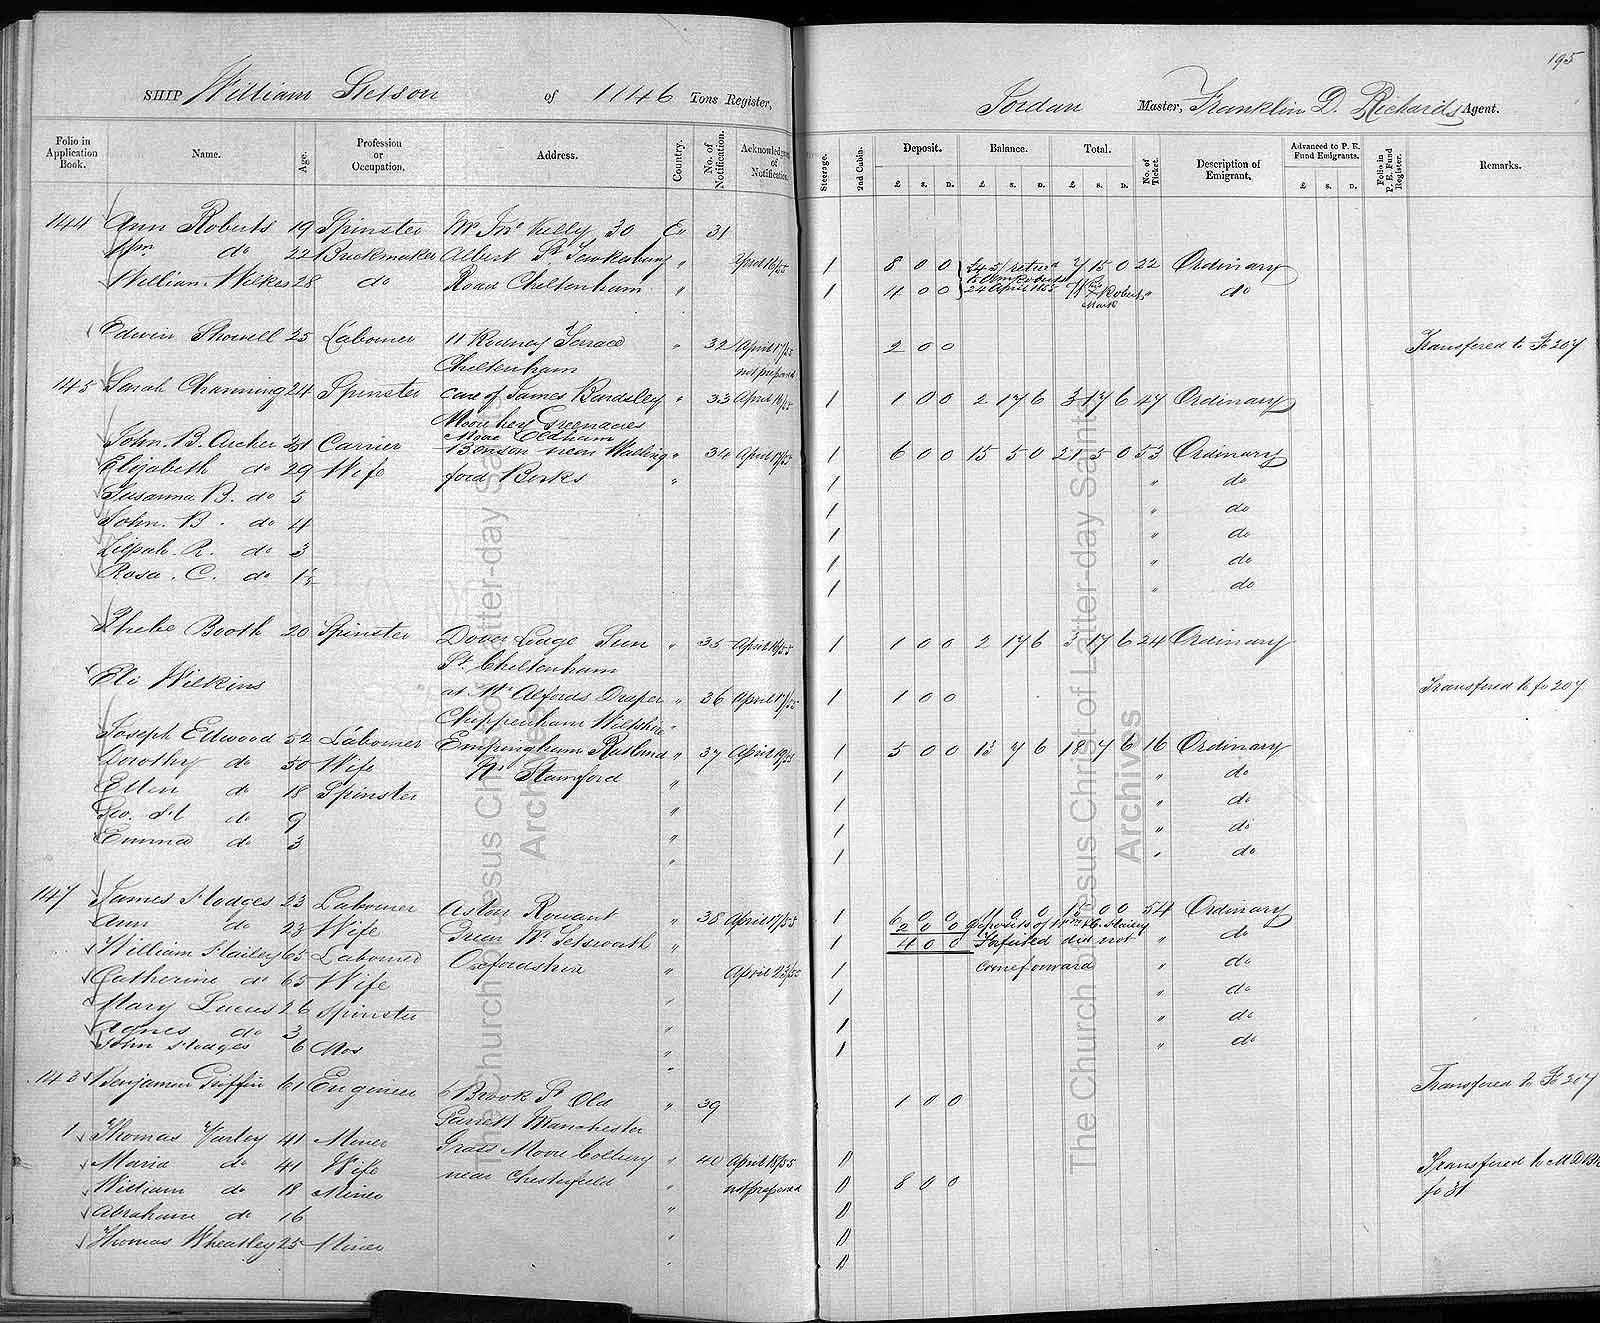 195
SHIP William Stetson of 1146 Tons Register, Jordan Master, Franklin D. Richards Agent.
Folio in Application Book. Name. Age. Profession or Occupation. Address. Country. No. of Notification. Acknowledgment of Notification. Steerage. 2nd Cabin. Deposit. £ s. D. Balance. £ s. D. Total. £ s. D. No. of Ticket. Description of Emigrant. Advanced to P. E. Fund Emigrants. £ s. D. Folio in P. E. Fund Register. Remarks.
144 Ann Roberts 19 Spinster Mr Jno Kelly 30 31
Wm do 22 Brickmaker Albert St Tewkesbury " April 16/55 1 8 0 0 7 15 0 22 Ordinary
William Wilkes 28 do Road Cheltenham " 1 4 0 0 24 April 1855 " do
Edwin Showell 25 Labourer 11 Rodney Terrace " 32 April 17/55 2 0 0 Transfered to Fo 207
Cheltenham not prepared
145 Sarah Channing 24 Spinster care of James Bardsley " 33 April 16/55 1 1 0 0 2 17 6 3 17 6 47 Ordinary
Moorhey Greenacres
Moor Oldham
John. B. Archer 31 Carrier Benson near Walling " 34 April 17/55 1 6 0 0 15 5 0 21 5 0 53 Ordinary
Elizabeth do 29 Wife ford Berks " 1 " do
Susanna B. do 5 1 " do
John. B. do 4 1 " do
Zilpah. R. do 3 1 " do
Rosa. C. do 1 1 " do
Phebe Booth 20 Spinster Dover Lodge Sun " 35 April 16/55 1 1 0 0 2 17 6 3 17 6 24 Ordinary
St. Cheltenham
Eli Wilkins at Mr Alfords Draper " 36 April 17/55 1 1 0 0 Transfered to fo 207
Chippenham Wiltshire "
Joseph Edwood 52 Labourer Empingham Rutland " 37 April 19/55 1 5 0 0 13 7 6 18 7 6 16 Ordinary
Dorothy do 50 Wife Nr Stamford " 1 " do
Ellen do 18 Spinster " 1 " do
Geo. H do 9 " 1 " do
Emma do 3 " 1 " do
147 James Hodges 23 Labourer Aston Rowant " 38 April 17/55 1 6 0 0 11 0 0 0 0 54 Ordinary
Ann do 23 Wife Green Nr Tetsworth " 1 2 0 0 deposits of Wm & C. Flailey " do
William Flailey 65 Labourer Oxfordshire " April 23/55 1 4 0 0 Forfeited did not " do
Catherine do 65 Wife " 1 come forward " do
Mary Lucus 26 Spinster " 1 " do
Agnes do 3 " 1 " do
John Hodges 6 Mos "
143 Benjamin Griffin 61 Engineer 6 Brook St Old " 39 1 0 0 Transfered to Fo 207
Garrett Manchester
1 Thomas Varley 41 Miner Grass Moor Colliery " 40 April 18/55 8 0 0 Transfered to M D Bk
Maria do 41 Wife near Chesterfield " not prepared fo 31
William do 18 Miner "
Abraham do 16 "
Thomas Wheatley 25 Miner
The Church of Jesus Christ of Latter-day Saints
Archives
The Church of Jesus Christ of Latter-day Saints
Archives